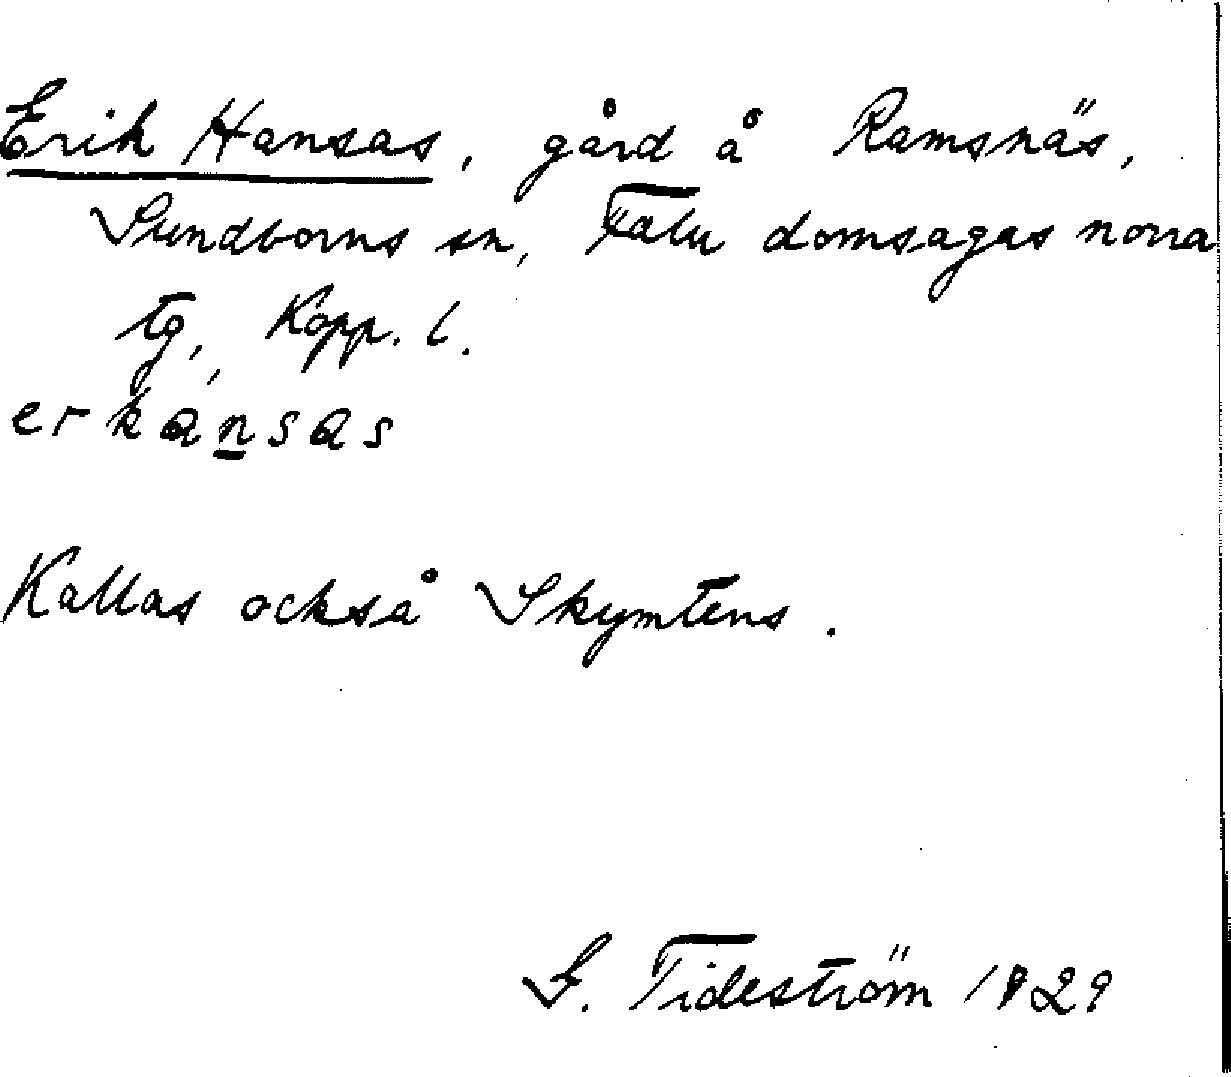 Erik Hansas, gård å Ramsnäs,
Sundborns sn, Falu domsagas norra
tg, Kopp. l.
erkánsas
Kallas också Skymtens.
G. Tideström 1929